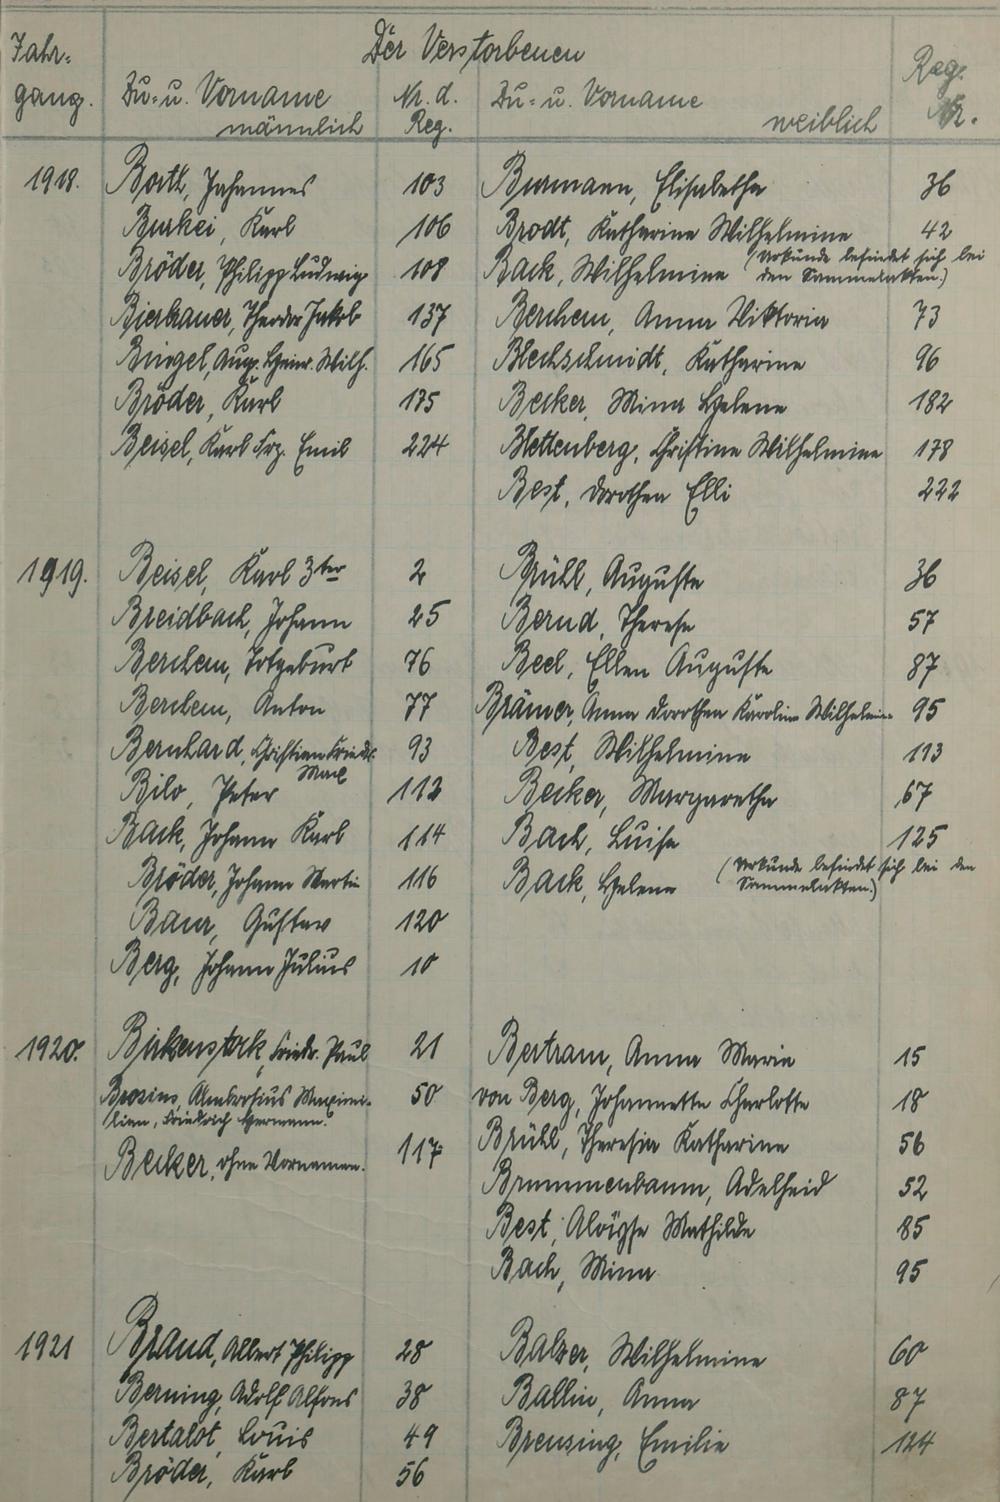 Jahr-
gang.
Der Verstorbenen
Zu- u. Vorname
männlich
Nr. d.
Reg.
Zu- u. Vorname
weiblich
Reg.
Nr.
1918. Borth, Johannes 103 Burmann, Elisabetha 36
Burkei, Karl 106 Brodt, Katharine Wilhelmine 42
Bröder, Philipp Ludwig 108 Back, Wilhelmine (Urkunde befindet sich bei
den Sammelakten.)
Bierbrauer, Theodor Jakob 137 Berchem, Anna Viktoria 73
Bingel, Aug. Heinr. Wilh. 165 Blechschmidt, Katharine 96
Bröder, Karl 175 Becker, Mina Helene 182
Beisel, Karl Frz. Emil 224 Blettenberg, Christine Wilhelmine 178
Best, Dorothea Elli 222
1919. Beisel, Karl 3ter 2 Brühl, Auguste 36
Breidbach, Johann 25 Bernd, Therese 57
Berchem, Totgeburt 76 Beel, Ellen Auguste 87
Berchem, Anton 77 Brämer, Anna Dorothea Karoline Wilhelmine 95
Bernhard, Christian Friedr. 93 Best, Wilhelmine 113
Bilo, Peter 112 Becker, Margaretha 67
Back, Johann Karl 114 Bach, Luise 125
Bröder, Johann Martin 116 Back, Helene (Urkunde befindet sich bei den
Sammelakten.)
Baur, Gustav 120
Berg, Johann Julius 10
1920. Birkenstock, Friedr. Paul 21 Bertram, Anna Maria 15
Brosius, Ambrosius Maximi- 50 von Berg, Johannette Charlotte 18
lian, Friedrich Hermann.
Brühl, Theresia Katharine 56
Becker, ohne Vornamen. 117 Brummenbaum, Adelheid 52
Best, Aloÿse Mathilde 85
Bach, Mina 95
1921 Braud, Albert Philipp 28 Balzer, Wilhelmine 60
Berning, Adolf Alfons 38 Ballin, Anna 87
Bertalot, Louis 49 Breusing, Emilie 124
Bröder, Karl 56